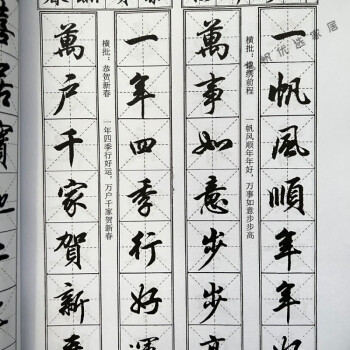 一帆風順年年好
横批：锦绣前程
一帆风顺年年好，万事如意步步高
萬事如意步步高
一年四季行好運
横批：恭贺新春
一年四季行好运，万户千家贺新春
萬户千家賀新春
优选家居